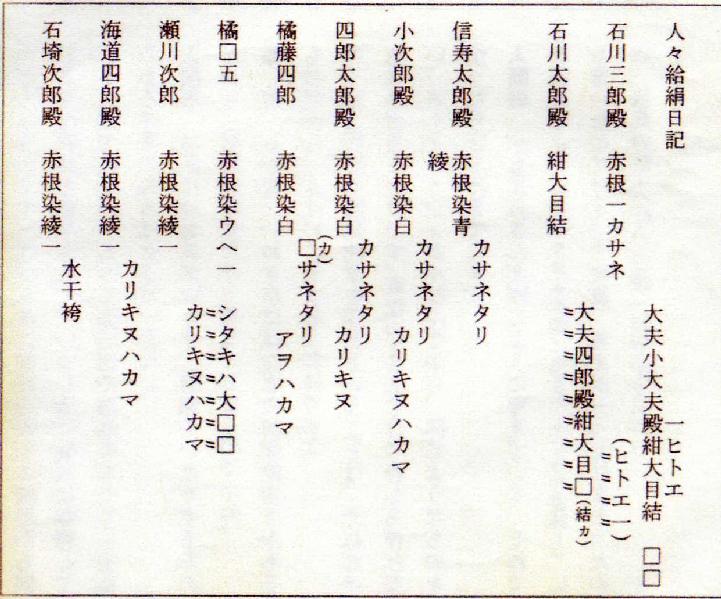 人々給絹日記
一ヒトエ
大夫小大夫殿紺大目結　□□
石川三郎殿　赤根一カサネ
(ヒトエ一)
大夫四郎殿紺大目□(結カ)
石川太郎殿　紺大目結
カサネタリ
信寿太郎殿　赤根染青
綾
カサネタリ
小次郎殿　赤根染白　カリキヌハカマ
カサネタリ
四郎太郎殿　赤根染白　カリキヌ
(カ)
□サネタリ
橘藤四郎　赤根染白　アヲハカマ
橘□五　赤根染ウヘ一　シタキハ大□□
カリキヌハカマ
瀬川次郎　赤根染綾一
カリキヌハカマ
海道四郎殿　赤根染綾一
水干袴
石埼次郎殿　赤根染綾一